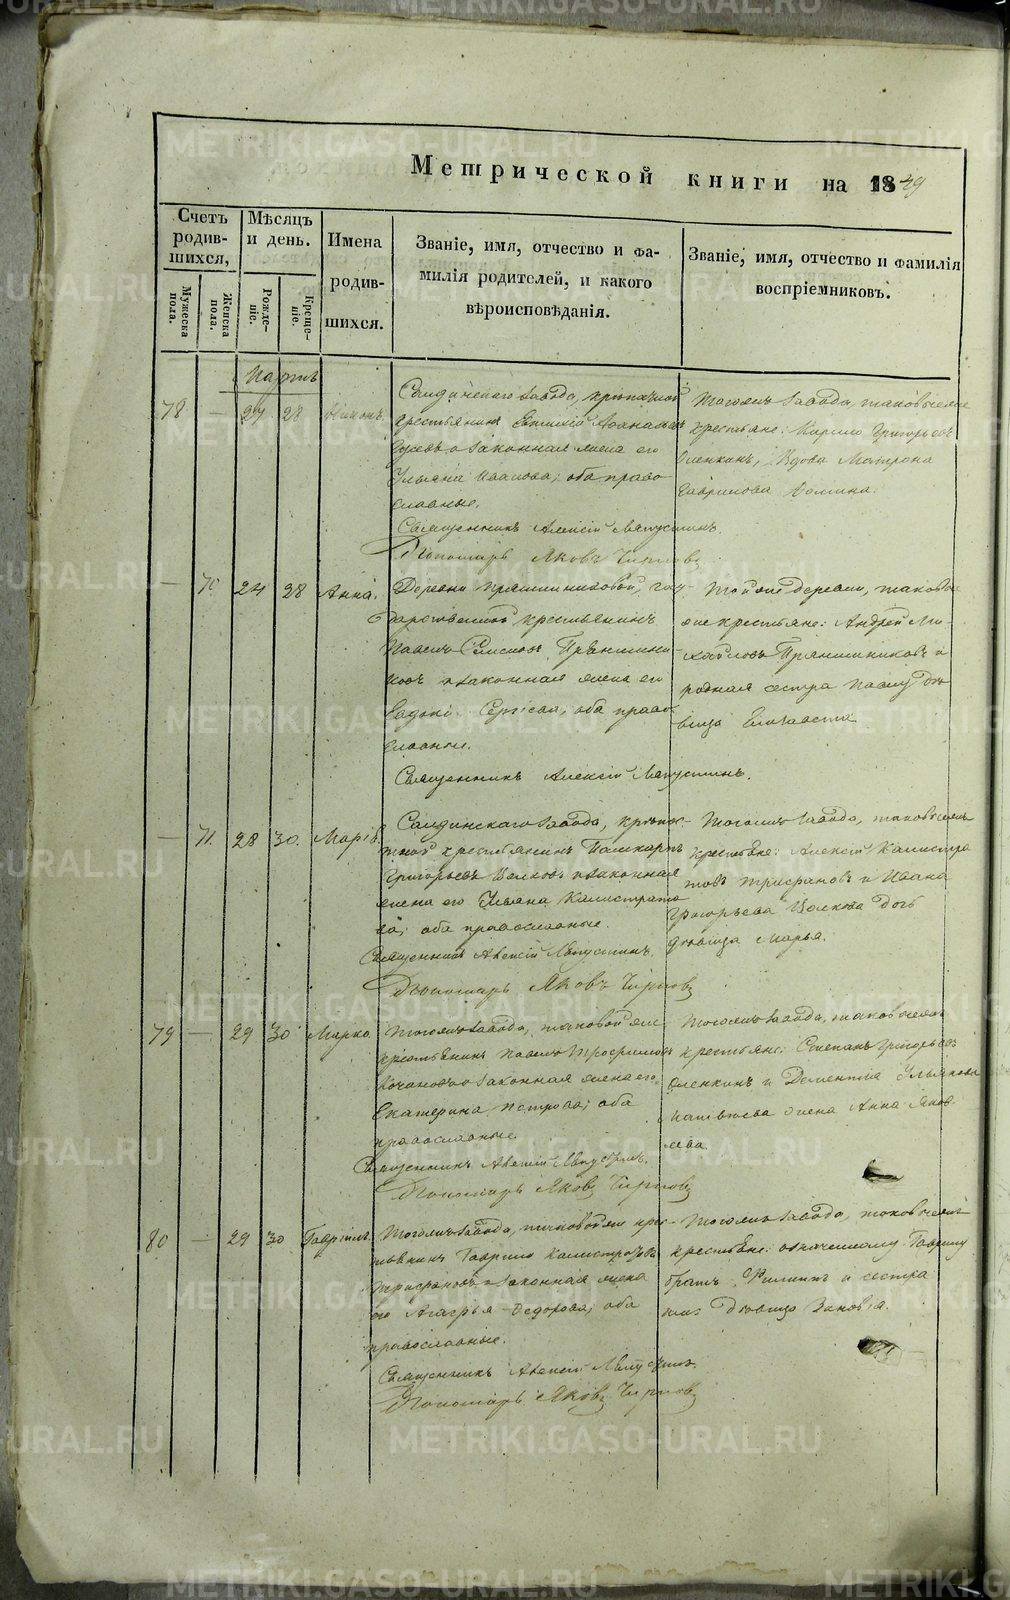 Метрической книги на 1849
Счетъ родив-шихся,
Мужеска пола.
Женска пола.
Мѣсяцъ и день.
Рожде-ніе.
Креще-ніе.
Имена родив-шихся.
Званіе, имя, отчество и фа-
милія родителей, и какого
вѣроисповѣданія.
Званіе, имя, отчество и фамилія
воспріемниковъ.
Мартъ
78 — 27 28
Салдинскаго завода,
законная жена его
Ульяна Иванова; оба право
славные.
Священникъ Алексій
Пономарь Яковъ
Тогожъ завода, таковые же
крестьяне: Кирило Григорьевъ
Оленкинъ, Вдова Матрона
Гаврилова
— 24 28 Анна.
Деревни Прянишниковой, госу-
дарственной крестьянинъ
Павелъ Прянишни
ковъ и законная жена его
оба право
славные.
Священникъ Алексій
Той же деревни,
же крестьяне: Андрей Ми
хайловъ Прянишниковъ и
родная сестра Павлу дѣ
вица Елизавета
— 71. 28 30. Марія.
Салдинскаго завода, крѣпос
тной крестьянинъ
Григорьевъ Волковъ и законная
жена его Ульяна Калистрато
ва; оба православные.
Священникъ Алексій
Пономарь Яковъ
Тогожъ завода, таковые же
крестьяне: Алексій Калистра
товъ и Ивана
Григорьева Волкова дочь
дѣвица Марья.
79 — 29 30 Марко.
Тогожъ завода, таковой же
крестьянинъ Павелъ Трофимовъ
и законная жена его
Екатерина Петрова; оба
православные.
Священникъ Алексій
Пономарь Яковъ
Тогожъ завода, таковые же
крестьяне: Степанъ Григорьевъ
Оленкинъ и Дементія Ульянова
жена Анна Яков
лева.
80 — 29 30 Гавріилъ.
Тогожъ завода, таковой же крес
тьянинъ Гаврило Калистратовъ
и законная жена
его Агафья Федорова; оба
православные.
Священникъ Алексій
Пономарь Яковъ
Тогожъ завода, таковые же
крестьяне: означенному Гаврилу
братъ Филиппъ и сестра
дѣвица Зиновія.
METRIKI.GASO-URAL.RU